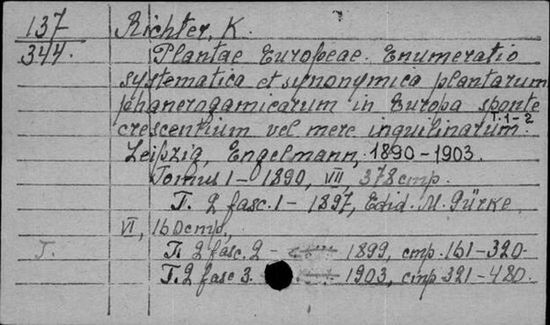 137 Richter, K.
344. Plantae Europeae. Enumeratio
systematica et synonymica plantarum
phanerogamicarum in Europa sponte
crescentium vel mere inquilinarum. T. 1-2
Leipzig, Engelmann, 1890-1903.
Tomus 1 - 1890, VII, 378 cmp.
T. 2 fasc. 1 - 1897, Edid. M. Gürke,
VI, 160 cmp,
T. T. 2 fasc. 2 - 1899, cmp. 161-320.
T. 2 fasc 3. 1903, cmp 321-480.